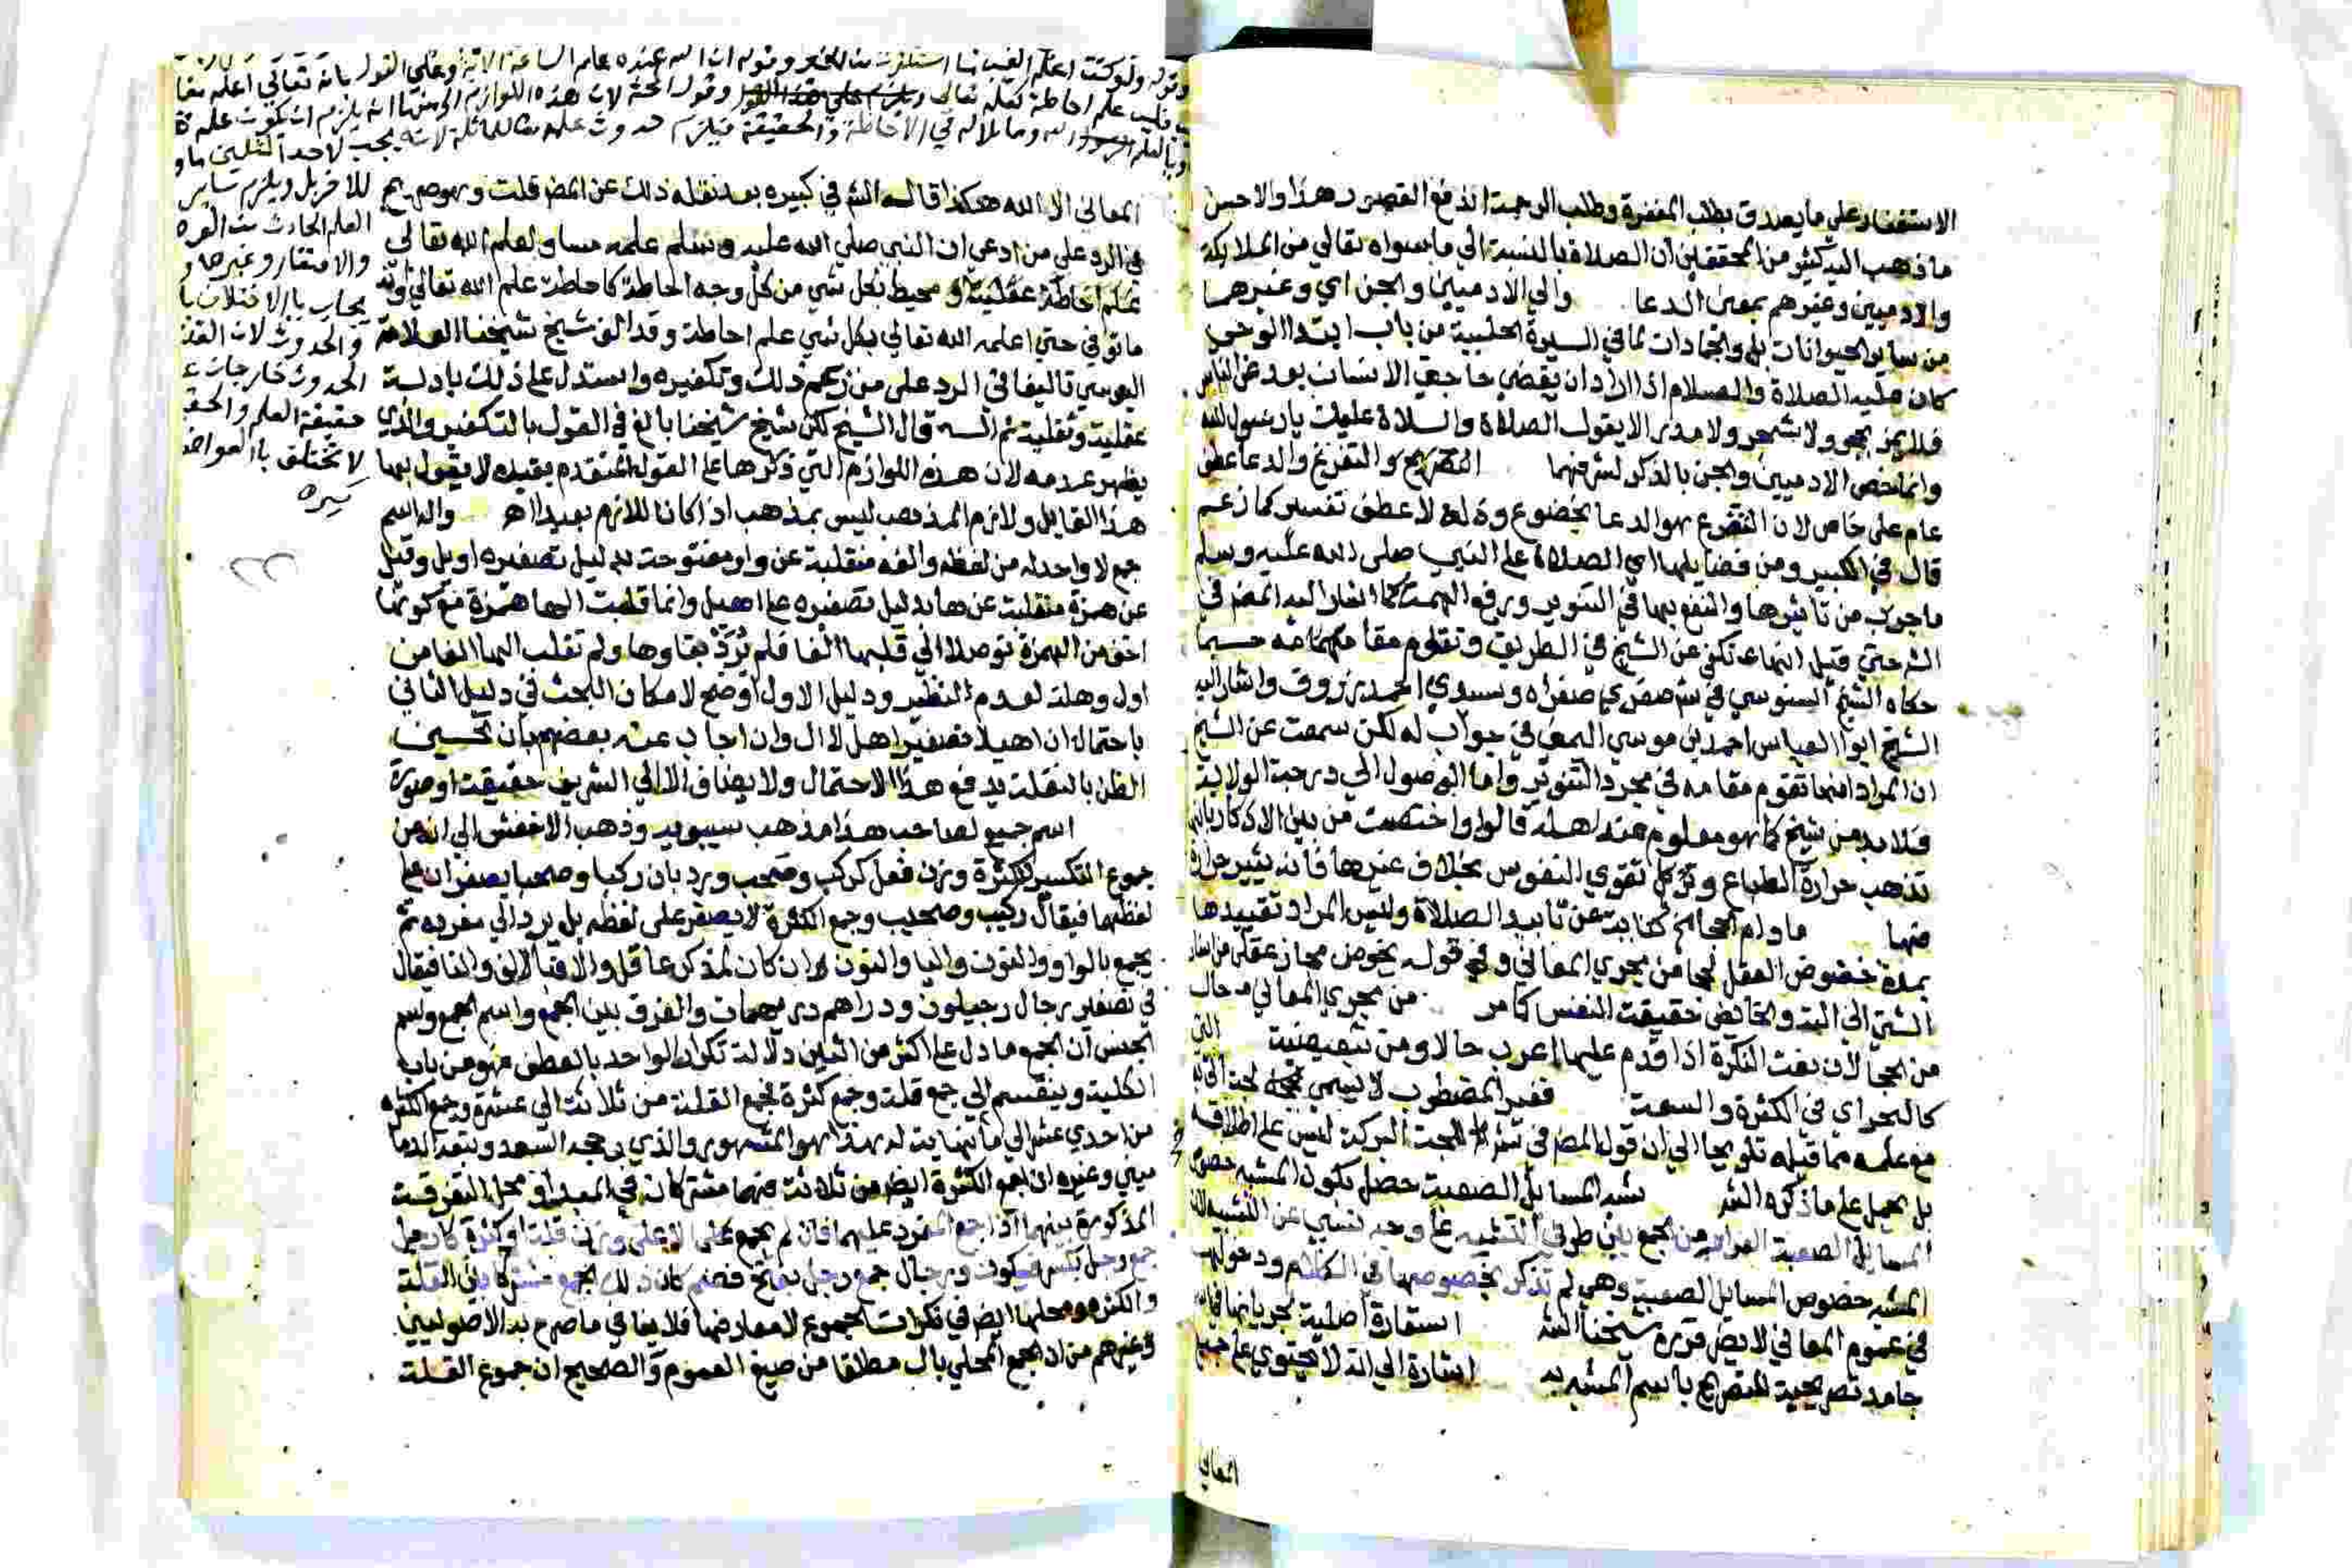 الاستغفار على ما يصدق بطلب المغفرة وطلب الرحمة اندفع القصير هذا والاحسن
ما ذهب اليه كثير من المحققين ان الصلاة بالنسبة الى ما سواه تعالى من الملايكة
والادميين وغيرهم بمعنى الدعا والى الادميين والجن اي وغيرهما
من ساير الحيوانات بل والجمادات لما في السيرة الحلبية من باب ابتدا الوحي
كان عليه الصلاة والسلام اذا اراد ان يقضي حاجة الانسان بعد عن الناس
فلا يمر بحجر ولا شجر ولا مدر الا يقول الصلاة والسلاة عليك يا رسول الله
وانما خص الادميين والجن بالذكر لشرفهما التضرع والدعا عطف
عام على خاص لان التضرع هو الدعا بخضوع وذلة لا عطف تفسير كما زعم
قال في الكبير ومن فضايلها اي الصلاة على النبي صلى الله عليه وسلم
ما جرب من تاثيرها والنفع بها في التنوير ورفع الهمة كما اشار اليه المص في
الشر حتى قيل انها تكفي عن الشيخ في الطريق وتقوم مقامه حسبما
حكاه الشيخ السنوسي في شر صغري صغراه وسيدي احمد زروق واشار اليه
الشيخ ابو العباس احمد بن موسي اليمني في جواب له لكن سمعت عن الشيخ
ان المراد انها تقوم مقامه في مجرد التنوير واما الوصول الى درجة الولاية
فلا بد من شيخ كما هو معلوم عند اهله قالوا واختصت من بين الاذكار بانها
تذهب حرارة الطباع وتقوي النفوس بخلاف غيرها فانه يثير حرارة
منها ما دام الحجا الخ كناية عن تابيد الصلاة وليس المراد تقييدها
بمدة خضوض العقل لججا من مجري المعاني وفي قوله يخوض مجاز عقلي من اسناد
الشي الى الته والخايض حقيقة النفس كما مر من مجري المعاني حال
من الحجا لان نعت النكرة اذا قدم عليها اعرب حالا ومن تبعيضية التي
كالبحر اي في الكثرة والسعة فغير المضطرب لا يسمى لجة
مع علمه مما قبله تلويحا الى ان قول المص في شر اللجة البركة ليس على اطلاقه
بل يحمل على ما ذكره الش شبه المسايل الصعبة حصل بكون المشبه خصوص
المسايل الصعبة الفرار من الجمع بين طرفي التشبيه على وجه ينبي عن التشبيه لان
المشبه خصوص المسايل الصعبة وهي لم تذكر بخصوصها في الكلام ودخولها
في عموم المعاني لا يضر قرره شيخنا الش استعارة اصلية لجريانها في
جامد تصريحية للتصريح باسم المشبه به اشارة الى انه لا يحتوي على جميع
المعاني
وقوله ولو كنت اعلم الغيب لاستكثرت من الخير وقوله ان الله عنده علم الساعة الاية وعلى القول بانه تعالى اعلمه
فليس علم احاطة كعلمه تعالى وقول لان هذه اللوازم
في الاحاطة والحقيقة فيلزم حدوث علمه تعالى للمماثلة لانه يجب لاحد المثلين ما و
للاخر بل ويلزم ساير
العلم الحادث من
والافتقار وغيرها و
يجاب باالاختلاف با
والحدوث لان القد
الحدوث خارجان ع
حقيقة العلم والحقـ
لا تختلف باالعوارض
كبيره
المعاني الا الله هكذا قاله الش في كبيره بعد نقله ذلك عن المص قلت وهو صريح
في الرد على من ادعي ان النبي صلى الله عليه وسلم علمه مساو لعلم الله تعالى
علم احاطة عقلية محيط بكل شي من كل وجه احاطة كاحاطة علم الله تعالى وانه
ما توفي حتى اعلمه الله تعالى بكل شي علم احاطة وقد الف شيخ شيخنا العلامة
اليوسي تاليفا في الرد على من زعم ذلك وتكفيره واستدل على ذلك بادلة
عقلية ونقلية ثم اليه قال الشيخ لكن شيخ شيخنا بالغ في القول بالتكفير والذي
يظهر عدمه لان هذه اللوازم التي ذكرها على القول المتقدم بقيده لا يقول بها
هذا القايل ولازم المذهب ليس بمذهب اذا كان اللازم بعيدا اهـ والـه اسم
جمع لا واحد له من لفظه والفه منقلبة عن واو مفتوحة بدليل تصغيره اويل وقيل
عن همزة منقلبة عن ها بدليل تصغيره على اهيل وانما قلبت الها همزة مع كونها
اخف من الهمزة توصلا الى قلبها الفا فلم يرد بقاوها ولم تقلب الها الفا من
اول وهلة لعدم النظير ودليل الاول اوضح لامكان البحث في دليل الثاني
باحتمال ان اهيلا تصغير اهل لا ال وان اجاب عنه بعضهم بان تحسين
الظن بالنقلة يدفع هذا الاحتمال ولا يضاف الا الى الشريف حقيقة او صورة
اسم جمع لصاحب هذا مذهب سيبويه وذهب الاخفش الى انه من
جموع التكسير للكثرة وزن فعل كركب وصحب ورد بان ركبا وصحبا يصغران على
لفظهما فيقال ركيب وصحيب وجمع الكثرة لا يصغر على لفظه بل يرد الى مفرده ثم
يجمع بالواو والنون واليا والنون ان كان لمذكر عاقل والا فبالالف والتا فيقال
في تصغير رجال رجيلون ودراهم دريهمات والفرق بين الجمع واسم الجمع واسم
الجنس ان الجمع ما دل على اكثر من اثنين دلالة تكرار الواحد بالعطف فهو من باب
الكلية وينقسم الى جمع قلة وجمع كثرة فجمع القلة من ثلاثة الى عشرة وجمع الكثرة
من احدي عشر الى ما لا نهاية له هذا هو المشهور والذي رجحه السعد وتبعه الدما
ميني وغيره ان جمع الكثرة ايضا من ثلاثة فهما مشتركان في المبدا ومحل التفرقة
المذكورة بينهما اذا جمع المفرد عليهما فان لم يجمع الا على وزن قلة او كثرة كارجل
جمع رجل بكسر فسكون ورجال جمع رجل بفتح فضم كان ذلك الجمع مشتركا بين القلة
والكثرة ومحلها ايضا في نكرات الجموع لا معارفها فلا ينافي ما صرح به الاصوليين
وغيرهم من ان الجمع المحلي بال مطلقا من صيغ العموم والصحيح ان جموع القلة